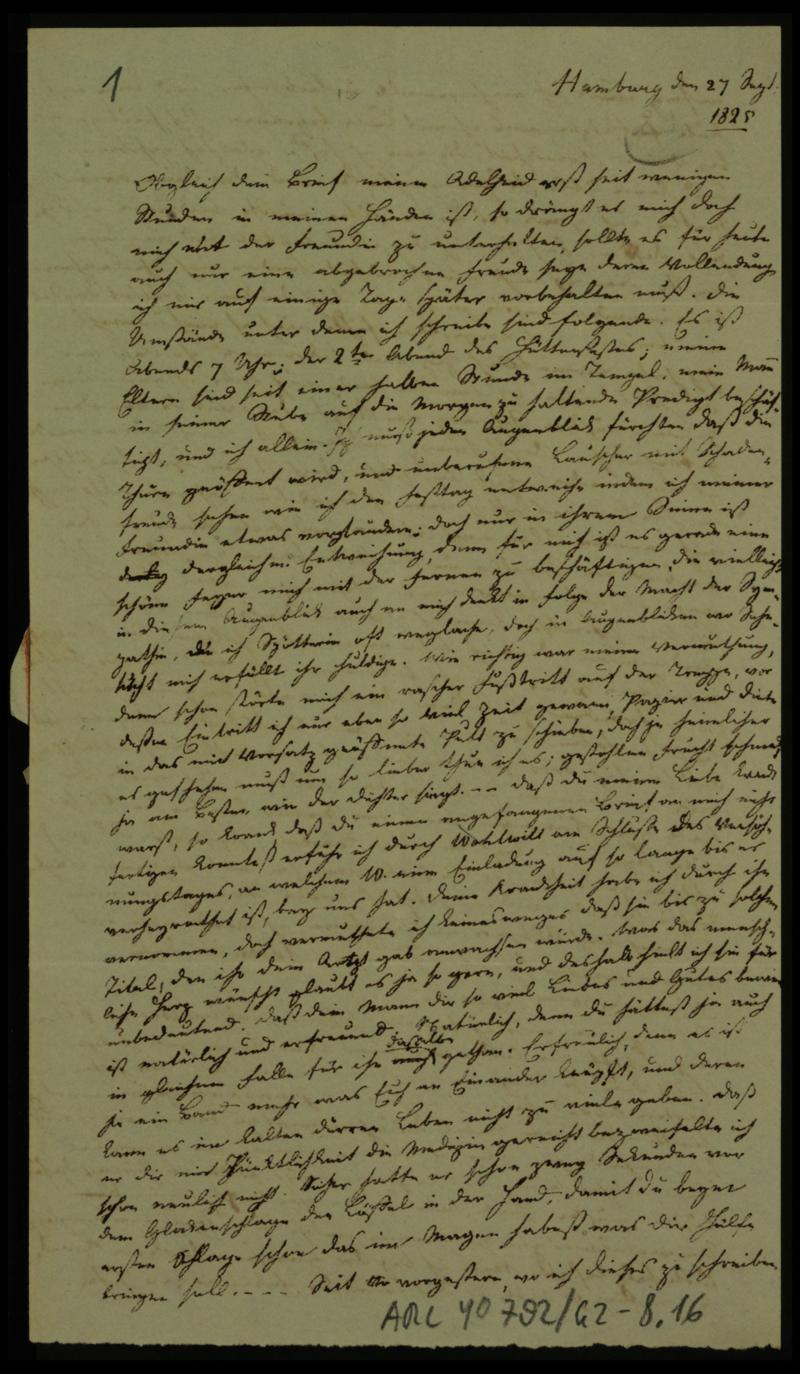 1
Hamburg den 27 Sept.
1825
Obgleich dein Brief meine Adelheid erst seit wenigen
Stunden in meinen Händen ist, so drängt es mich doch
mich mit der Freundin zu unterhalten, sollte es für heute
auch nur eine abgebrochne Freude seyn deren Vollendung
ich mir auf einige Tage später vorbehalten muß. Die
Umstände unter denen ich schreibe sind folgende. Es ist
Abends 7 Uhr; der 2te Abend des Hüttenfestes; meine
Eltern sind seit einer halben Stunde im Tempel, mein Mann
in seiner Stube auf die morgen zu haltende Predigt beschäf-
tigt, und ich allein. Ich muß jeden Augenblick fürchten daß die
Thüre geöffnet wird, und unberufene Lauscher mit Schaden-
freude sehen wie ich den Festtag entweihe indem ich meiner
Freundin etwas vorplaudere; doch nur in ihrem Sinne ist
dergleichen Entweihung, denn für mich ist es gerade eine
schöne Feyer mich mit der Fernen zu beschäftigen, die vielleicht
in diesem Augenblick auch an mich denkt in Folge der Macht der Sym-
pathie, die ich Spötterin oft weglache, doch in Augenblicken wo Sehn-
sucht mich erfüllt ihr huldige. Wie richtig war meine Vermuthung,
denn schon störte mich ein rascher Fußtritt auf der Treppe, vor
dessen Eintritt ich nur eben so viel Zeit gewann, Papier und Dinte
in das mit Vorsatz geöffnete Pult zu schieben, doch je heimlicher
es geschehen muß um so lieber thue ich es; gestohlne Frucht schmeckt
ja am Besten, wie der Dichter singt. -- Daß du meine Liebe krank
warst, so krank daß du einen angefangenen Brief an mich nicht
fertigen konntest erfuhr ich durch Wohlwill am Schluße des Versöh-
nungstages, an welchem W. eine Einladung auf so lange bis er
verheyrathet ist, bey uns hat. Deine Krankheit habe ich durch ihn
vernommen, doch vermuthete ich keinesweges daß sie bis zu solchem
Titel, den ihr dein Arzt gab anwachsen würde. Was das mensch-
liche Herz wünscht glaubt es ja so gern, und deshalb hielt ich sie für
unbedeutend. Daß dein Mann dir so viel Liebes und Gutes bewies
ist natürlich und erfreuend. Natürlich, denn du hättest ja auch
in gleichem Falle für ihn dasselbe gethan. Erfreulich, denn es ist
ja ein Band mehr was Euch an Einander knüpft, und deren
kann es im kalten dürren Leben nicht zu viele geben. Daß
er dir mit Pünktlichkeit die Medizin gereicht bezweifelte ich
schon neulich nicht. Sicher hatte er schon zwey Sekunden vor
dem Glockenschlage den Löffel in der Hand, damit du beym
ersten Schlage schon das im Magen habest was dir Hülfe
bringen soll. -- -- Seit vorgestern, wo ich dieses zu schreiben
ARC 40 792/G2-8.16